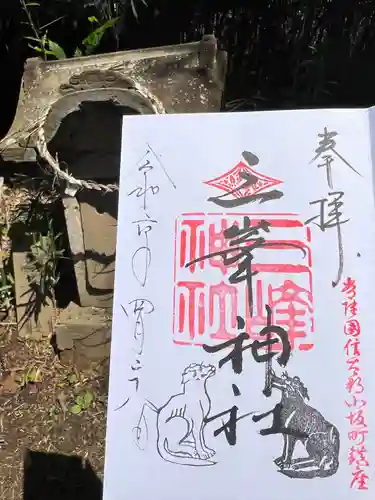 奉拝
常陸国信太郡小坂町鎮座
三峯神社
三峰
神社
令和六年四月三十日